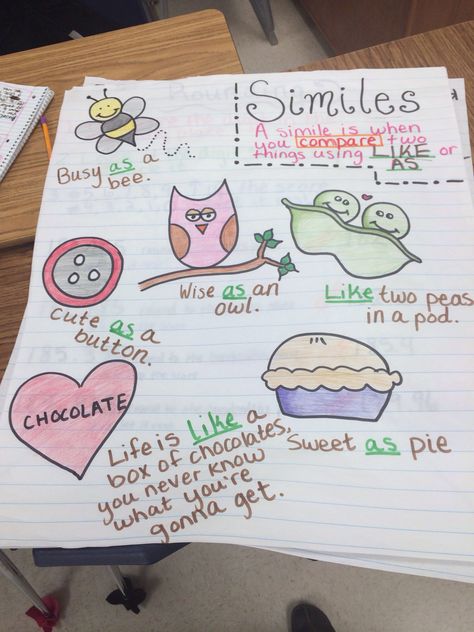 Similes
A simile is when
you compare two
things using LIKE or
AS
Busy as a
bee.
Wise as an
owl.
Like two peas
in a pod.
Cute as a
button.
CHOCOLATE
Life is like a
box of chocolates,
you never know
what you're
gonna get.
Sweet as pie